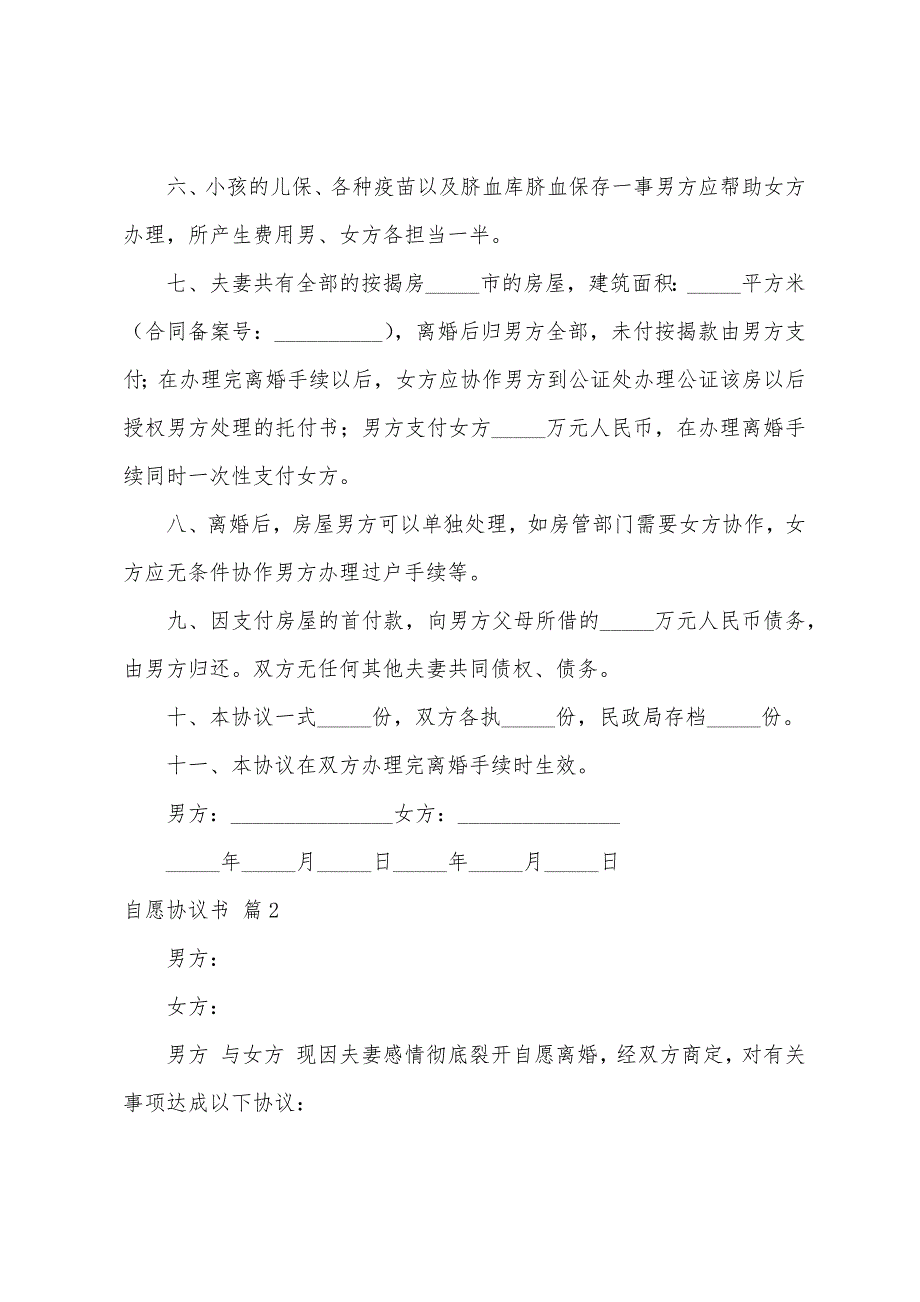 六、小孩的儿保、各种疫苗以及脐血库脐血保存一事男方应帮助女方
办理，所产生费用男、女方各担当一半。
七、夫妻共有全部的按揭房_____市的房屋，建筑面积：_____平方米
（合同备案号：__________），离婚后归男方全部，未付按揭款由男方支
付；在办理完离婚手续以后，女方应协作男方到公证处办理公证该房以后
授权男方处理的托付书；男方支付女方_____万元人民币，在办理离婚手
续同时一次性支付女方。
八、离婚后，房屋男方可以单独处理，如房管部门需要女方协作，女
方应无条件协作男方办理过户手续等。
九、因支付房屋的首付款，向男方父母所借的_____万元人民币债务，
由男方归还。双方无任何其他夫妻共同债权、债务。
十、本协议一式_____份，双方各执_____份，民政局存档_____份。
十一、本协议在双方办理完离婚手续时生效。
男方：_______________女方：_______________
_____年_____月_____日_____年_____月_____日
自愿协议书 篇2
男方：
女方：
男方 与女方 现因夫妻感情彻底裂开自愿离婚，经双方商定，对有关
事项达成以下协议：